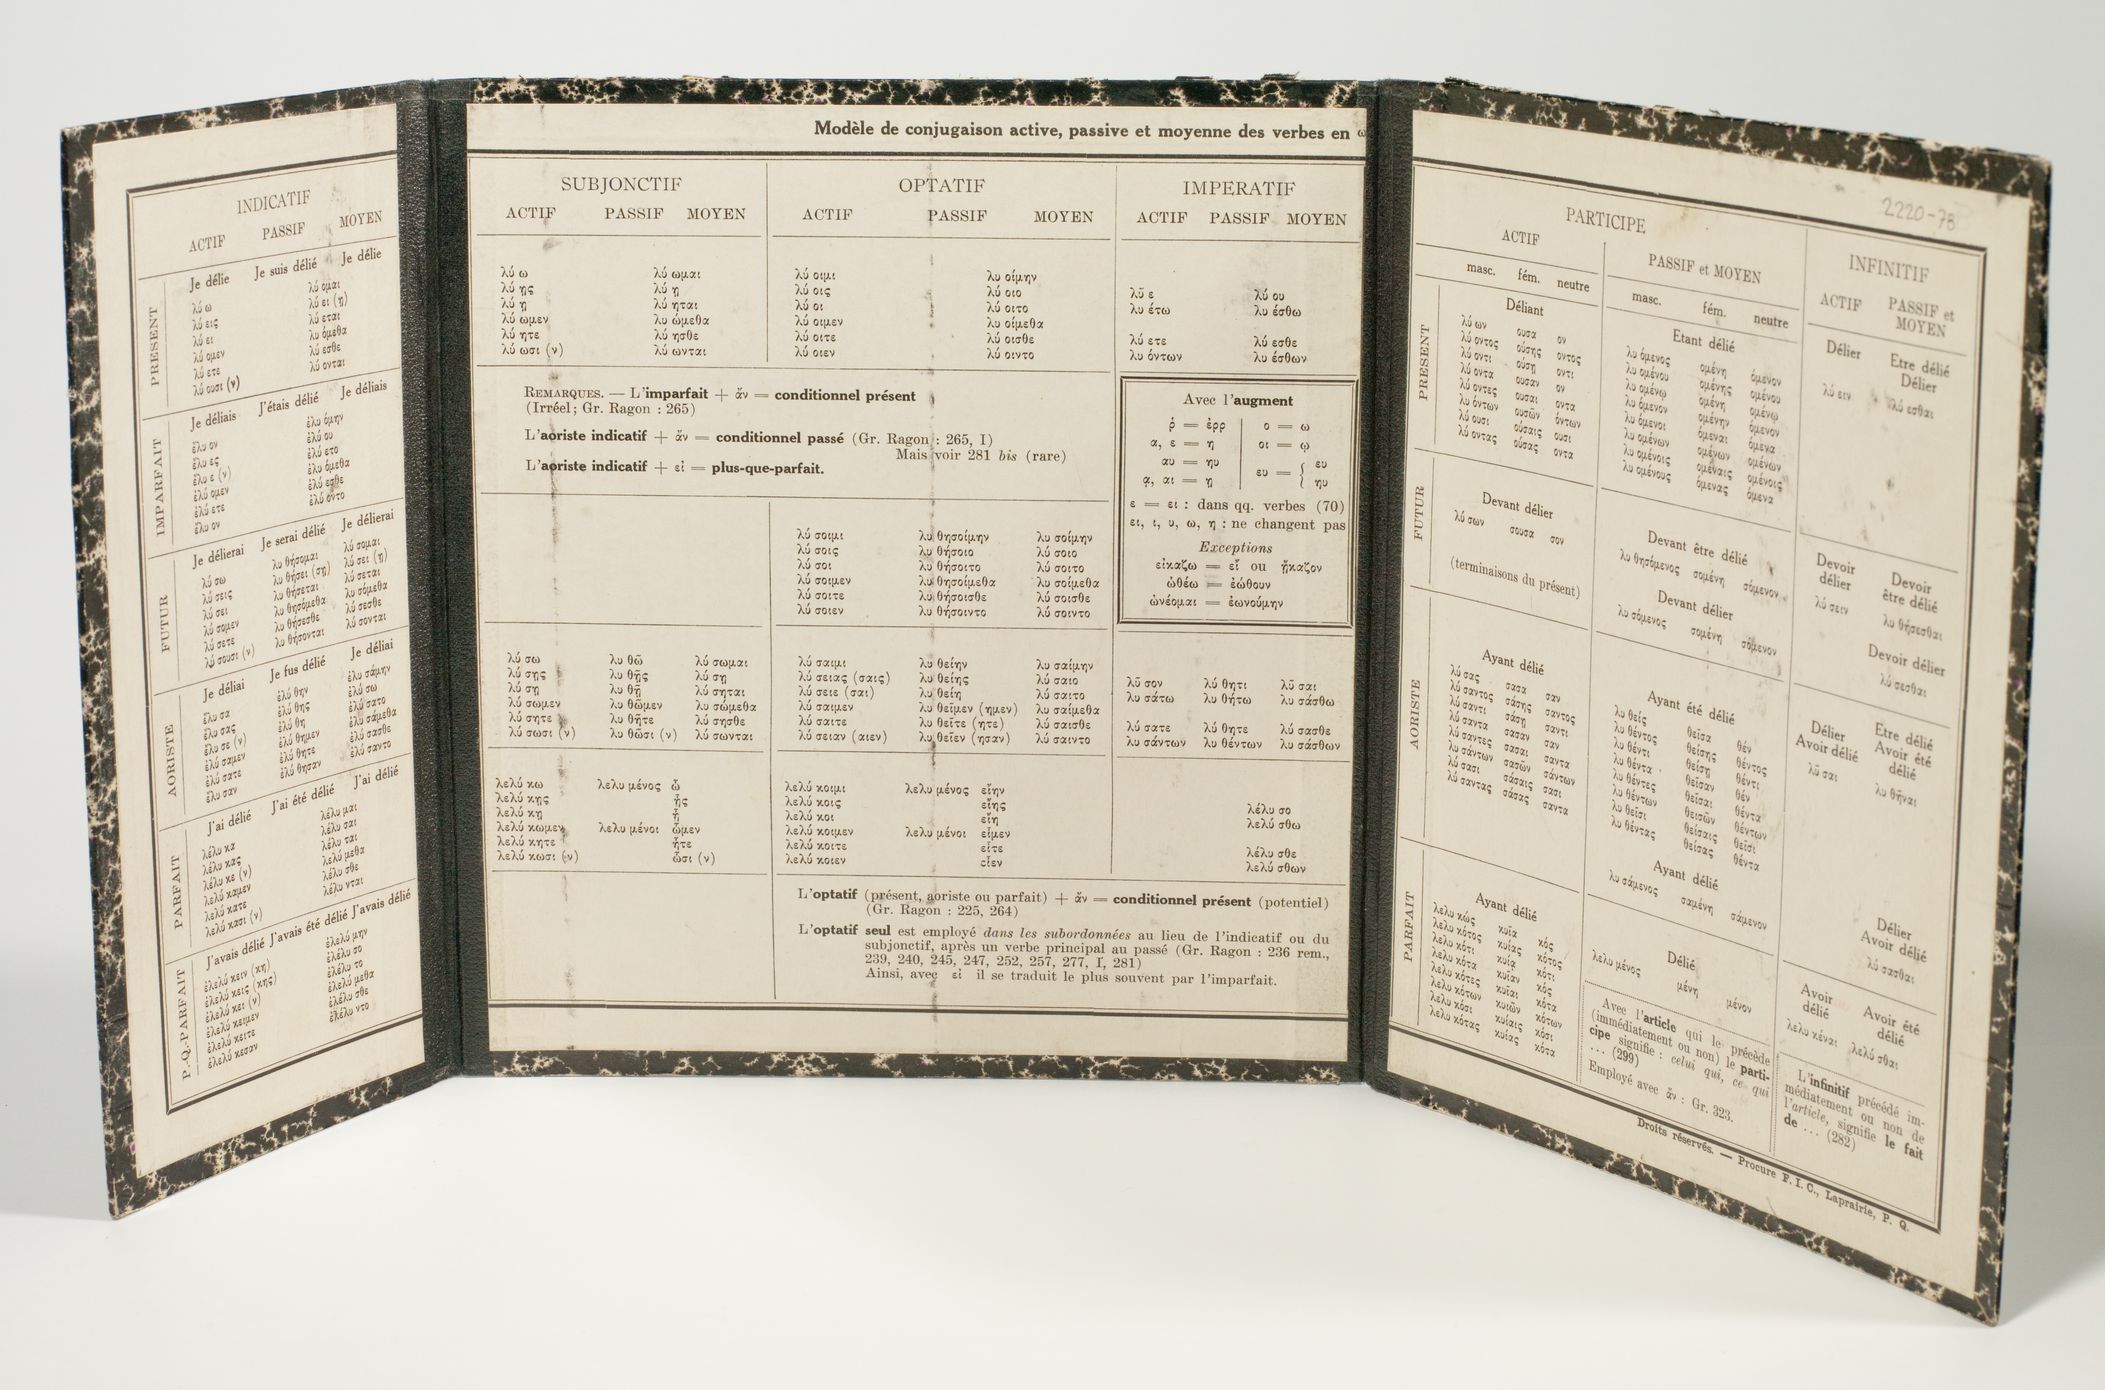 Modèle de conjugaison active, passive et moyenne des verbes en ω
INDICATIF
ACTIF PASSIF MOYEN
PRESENT
Je délie Je suis délié Je délie
λύ ω λύ ομαι
λύ εις λύ ει (ῃ)
λύ ει λύ εται
λύ ομεν λυ όμεθα
λύ ετε λύ εσθε
λύ ουσι (ν) λύ ονται
IMPARFAIT
Je déliais J'étais délié Je déliais
ἔλυ ον ἐλυ όμην
ἔλυ ες ἐλύ ου
ἔλυ ε (ν) ἐλύ ετο
ἐλύ ομεν ἐλυ όμεθα
ἐλύ ετε ἐλύ εσθε
ἔλυ ον ἐλύ οντο
FUTUR
Je délierai Je serai délié Je délierai
λύ σω λυ θήσομαι λύ σομαι
λύ σεις λυ θήσει (σῃ) λύ σει (ῃ)
λύ σει λυ θήσεται λύ σεται
λύ σομεν λυ θησόμεθα λυ σόμεθα
λύ σετε λυ θήσεσθε λύ σεσθε
λύ σουσι (ν) λυ θήσονται λύ σονται
AORISTE
Je déliai Je fus délié Je déliai
ἔλυ σα ἐλύ θην ἐλυ σάμην
ἔλυ σας ἐλύ θης ἐλύ σω
ἔλυ σε (ν) ἐλύ θη ἐλύ σατο
ἐλύ σαμεν ἐλύ θημεν ἐλυ σάμεθα
ἐλύ σατε ἐλύ θητε ἐλύ σασθε
ἔλυ σαν ἐλύ θησαν ἐλύ σαντο
PARFAIT
J'ai délié J'ai été délié J'ai délié
λέλυ κα λέλυ μαι
λέλυ κας λέλυ σαι
λέλυ κε (ν) λέλυ ται
λελύ καμεν λελύ μεθα
λελύ κατε λέλυ σθε
λελύ κασι (ν) λέλυ νται
P.-Q.-PARFAIT
J'avais délié J'avais été délié J'avais délié
ἐλελύ κειν (κη) ἐλελύ μην
ἐλελύ κεις (κης) ἐλέλυ σο
ἐλελύ κει (ν) ἐλέλυ το
ἐλελύ κειμεν ἐλελύ μεθα
ἐλελύ κειτε ἐλέλυ σθε
ἐλελύ κεσαν ἐλέλυ ντο
SUBJONCTIF
ACTIF PASSIF MOYEN
λύ ω λύ ωμαι
λύ ῃς λύ ῃ
λύ ῃ λύ ηται
λύ ωμεν λυ ώμεθα
λύ ητε λύ ησθε
λύ ωσι (ν) λύ ωνται
OPTATIF
ACTIF PASSIF MOYEN
λύ οιμι λυ οίμην
λύ οις λύ οιο
λύ οι λύ οιτο
λύ οιμεν λυ οίμεθα
λύ οιτε λύ οισθε
λύ οιεν λύ οιντο
IMPERATIF
ACTIF PASSIF MOYEN
λῦ ε λύ ου
λυ έτω λυ έσθω
λύ ετε λύ εσθε
λυ όντων λυ έσθων
REMARQUES. — L'imparfait + ἄν = conditionnel présent
(Irréel; Gr. Ragon : 265)
L'aoriste indicatif + ἄν = conditionnel passé (Gr. Ragon : 265, I)
Mais voir 281 bis (rare)
L'aoriste indicatif + εἰ = plus-que-parfait.
Avec l'augment
ῥ = ἐρρ ο = ω
α, ε = η οι = ῳ
αυ = ηυ ευ = { ευ
ᾳ, αι = ῃ ηυ
ε = ει : dans qq. verbes (70)
ει, ι, υ, ω, η : ne changent pas
Exceptions
εἰκαζω = εἴ ou ᾔκαζον
ὠθέω = ἐώθουν
ὠνέομαι = ἐωνούμην
λύ σοιμι λυ θησοίμην λυ σοίμην
λύ σοις λυ θήσοιο λύ σοιο
λύ σοι λυ θήσοιτο λύ σοιτο
λύ σοιμεν λυ θησοίμεθα λυ σοίμεθα
λύ σοιτε λυ θήσοισθε λύ σοισθε
λύ σοιεν λυ θήσοιντο λύ σοιντο
λύ σω λυ θῶ λύ σωμαι
λύ σῃς λυ θῇς λύ σῃ
λύ σῃ λυ θῇ λύ σηται
λύ σωμεν λυ θῶμεν λυ σώμεθα
λύ σητε λυ θῆτε λύ σησθε
λύ σωσι (ν) λυ θῶσι (ν) λύ σωνται
λύ σαιμι λυ θείην λυ σαίμην
λύ σειας (σαις) λυ θείης λύ σαιο
λύ σειε (σαι) λυ θείη λύ σαιτο
λύ σαιμεν λυ θεῖμεν (ημεν) λυ σαίμεθα
λύ σαιτε λυ θεῖτε (ητε) λύ σαισθε
λύ σειαν (αιεν) λυ θεῖεν (ησαν) λύ σαιντο
λῦ σον λύ θητι λῦ σαι
λυ σάτω λυ θήτω λυ σάσθω
λύ σατε λύ θητε λύ σασθε
λυ σάντων λυ θέντων λυ σάσθων
λελύ κω λελυ μένος ὦ
λελύ κῃς ᾖς
λελύ κῃ ᾖ
λελύ κωμεν λελυ μένοι ὦμεν
λελύ κητε ἦτε
λελύ κωσι (ν) ὦσι (ν)
λελύ κοιμι λελυ μένος εἴην
λελύ κοις εἴης
λελύ κοι εἴη
λελύ κοιμεν λελυ μένοι εἶμεν
λελύ κοιτε εἶτε
λελύ κοιεν εἶεν
λέλυ σο
λελύ σθω
λέλυ σθε
λελύ σθων
L'optatif (présent, aoriste ou parfait) + ἄν = conditionnel présent (potentiel)
(Gr. Ragon : 225, 264)
L'optatif seul est employé dans les subordonnées au lieu de l'indicatif ou du
subjonctif, après un verbe principal au passé (Gr. Ragon : 236 rem.,
239, 240, 245, 247, 252, 257, 277, I, 281)
Ainsi, avec εἰ il se traduit le plus souvent par l'imparfait.
2220-78
PARTICIPE
ACTIF
masc. fém. neutre
PRESENT
Déliant
λύ ων ουσα ον
λύ οντος ούσης οντος
λύ οντι ούσῃ οντι
λύ οντα ουσαν ον
λύ οντες ουσαι οντα
λυ όντων ουσῶν όντων
λύ ουσι ούσαις ουσι
λύ οντας ούσας οντα
FUTUR
Devant délier
λύ σων σουσα σον
(terminaisons du présent)
AORISTE
Ayant délié
λύ σας σασα σαν
λύ σαντος σάσης σαντος
λύ σαντι σάσῃ σαντι
λύ σαντα σασαν σαν
λύ σαντες σασαι σαντα
λυ σάντων σασῶν σάντων
λύ σασι σάσαις σασι
λύ σαντας σάσας σαντα
PARFAIT
Ayant délié
λελυ κώς κυῖα κός
λελυ κότος κυίας κότος
λελυ κότι κυίᾳ κότι
λελυ κότα κυῖαν κός
λελυ κότες κυῖαι κότα
λελυ κότων κυιῶν κότων
λελυ κόσι κυίαις κόσι
λελυ κότας κυίας κότα
PASSIF et MOYEN
masc. fém. neutre
Etant délié
λυ όμενος ομένη όμενον
λυ ομένου ομένης ομένου
λυ ομένῳ ομένῃ ομένῳ
λυ όμενον ομένην όμενον
λυ όμενοι όμεναι όμενα
λυ ομένων ομένων ομένων
λυ ομένοις ομέναις ομένοις
λυ ομένους ομένας όμενα
Devant être délié
λυ θησόμενος σομένη σόμενον
Devant délier
λυ σόμενος σομένη σόμενον
Ayant été délié
λυ θείς θεῖσα θέν
λυ θέντος θείσης θέντος
λυ θέντι θείσῃ θέντι
λυ θέντα θεῖσαν θέν
λυ θέντες θεῖσαι θέντα
λυ θέντων θεισῶν θέντων
λυ θεῖσι θείσαις θεῖσι
λυ θέντας θείσας θέντα
Ayant délié
λυ σάμενος σαμένη σάμενον
Délié
λελυ μένος μένη μένον
Avec l'article qui le précède
(immédiatement ou non) le parti-
cipe signifie : celui qui, ce qui
... (299)
Employé avec ἄν : Gr. 323.
INFINITIF
ACTIF PASSIF et
MOYEN
Délier Etre délié
Délier
λύ ειν λύ εσθαι
Devoir Devoir
délier être délié
λύ σειν λυ θήσεσθαι
Devoir délier
λύ σεσθαι
Délier Etre délié
Avoir délié Avoir été
délié
λῦ σαι λυ θῆναι
Délier
Avoir délié
λύ σασθαι
Avoir Avoir été
délié délié
λελυ κέναι λελύ σθαι
L'infinitif précédé im-
médiatement ou non de
l'article, signifie le fait
de ... (282)
Droits réservés. — Procure F. I. C., Laprairie, P. Q.